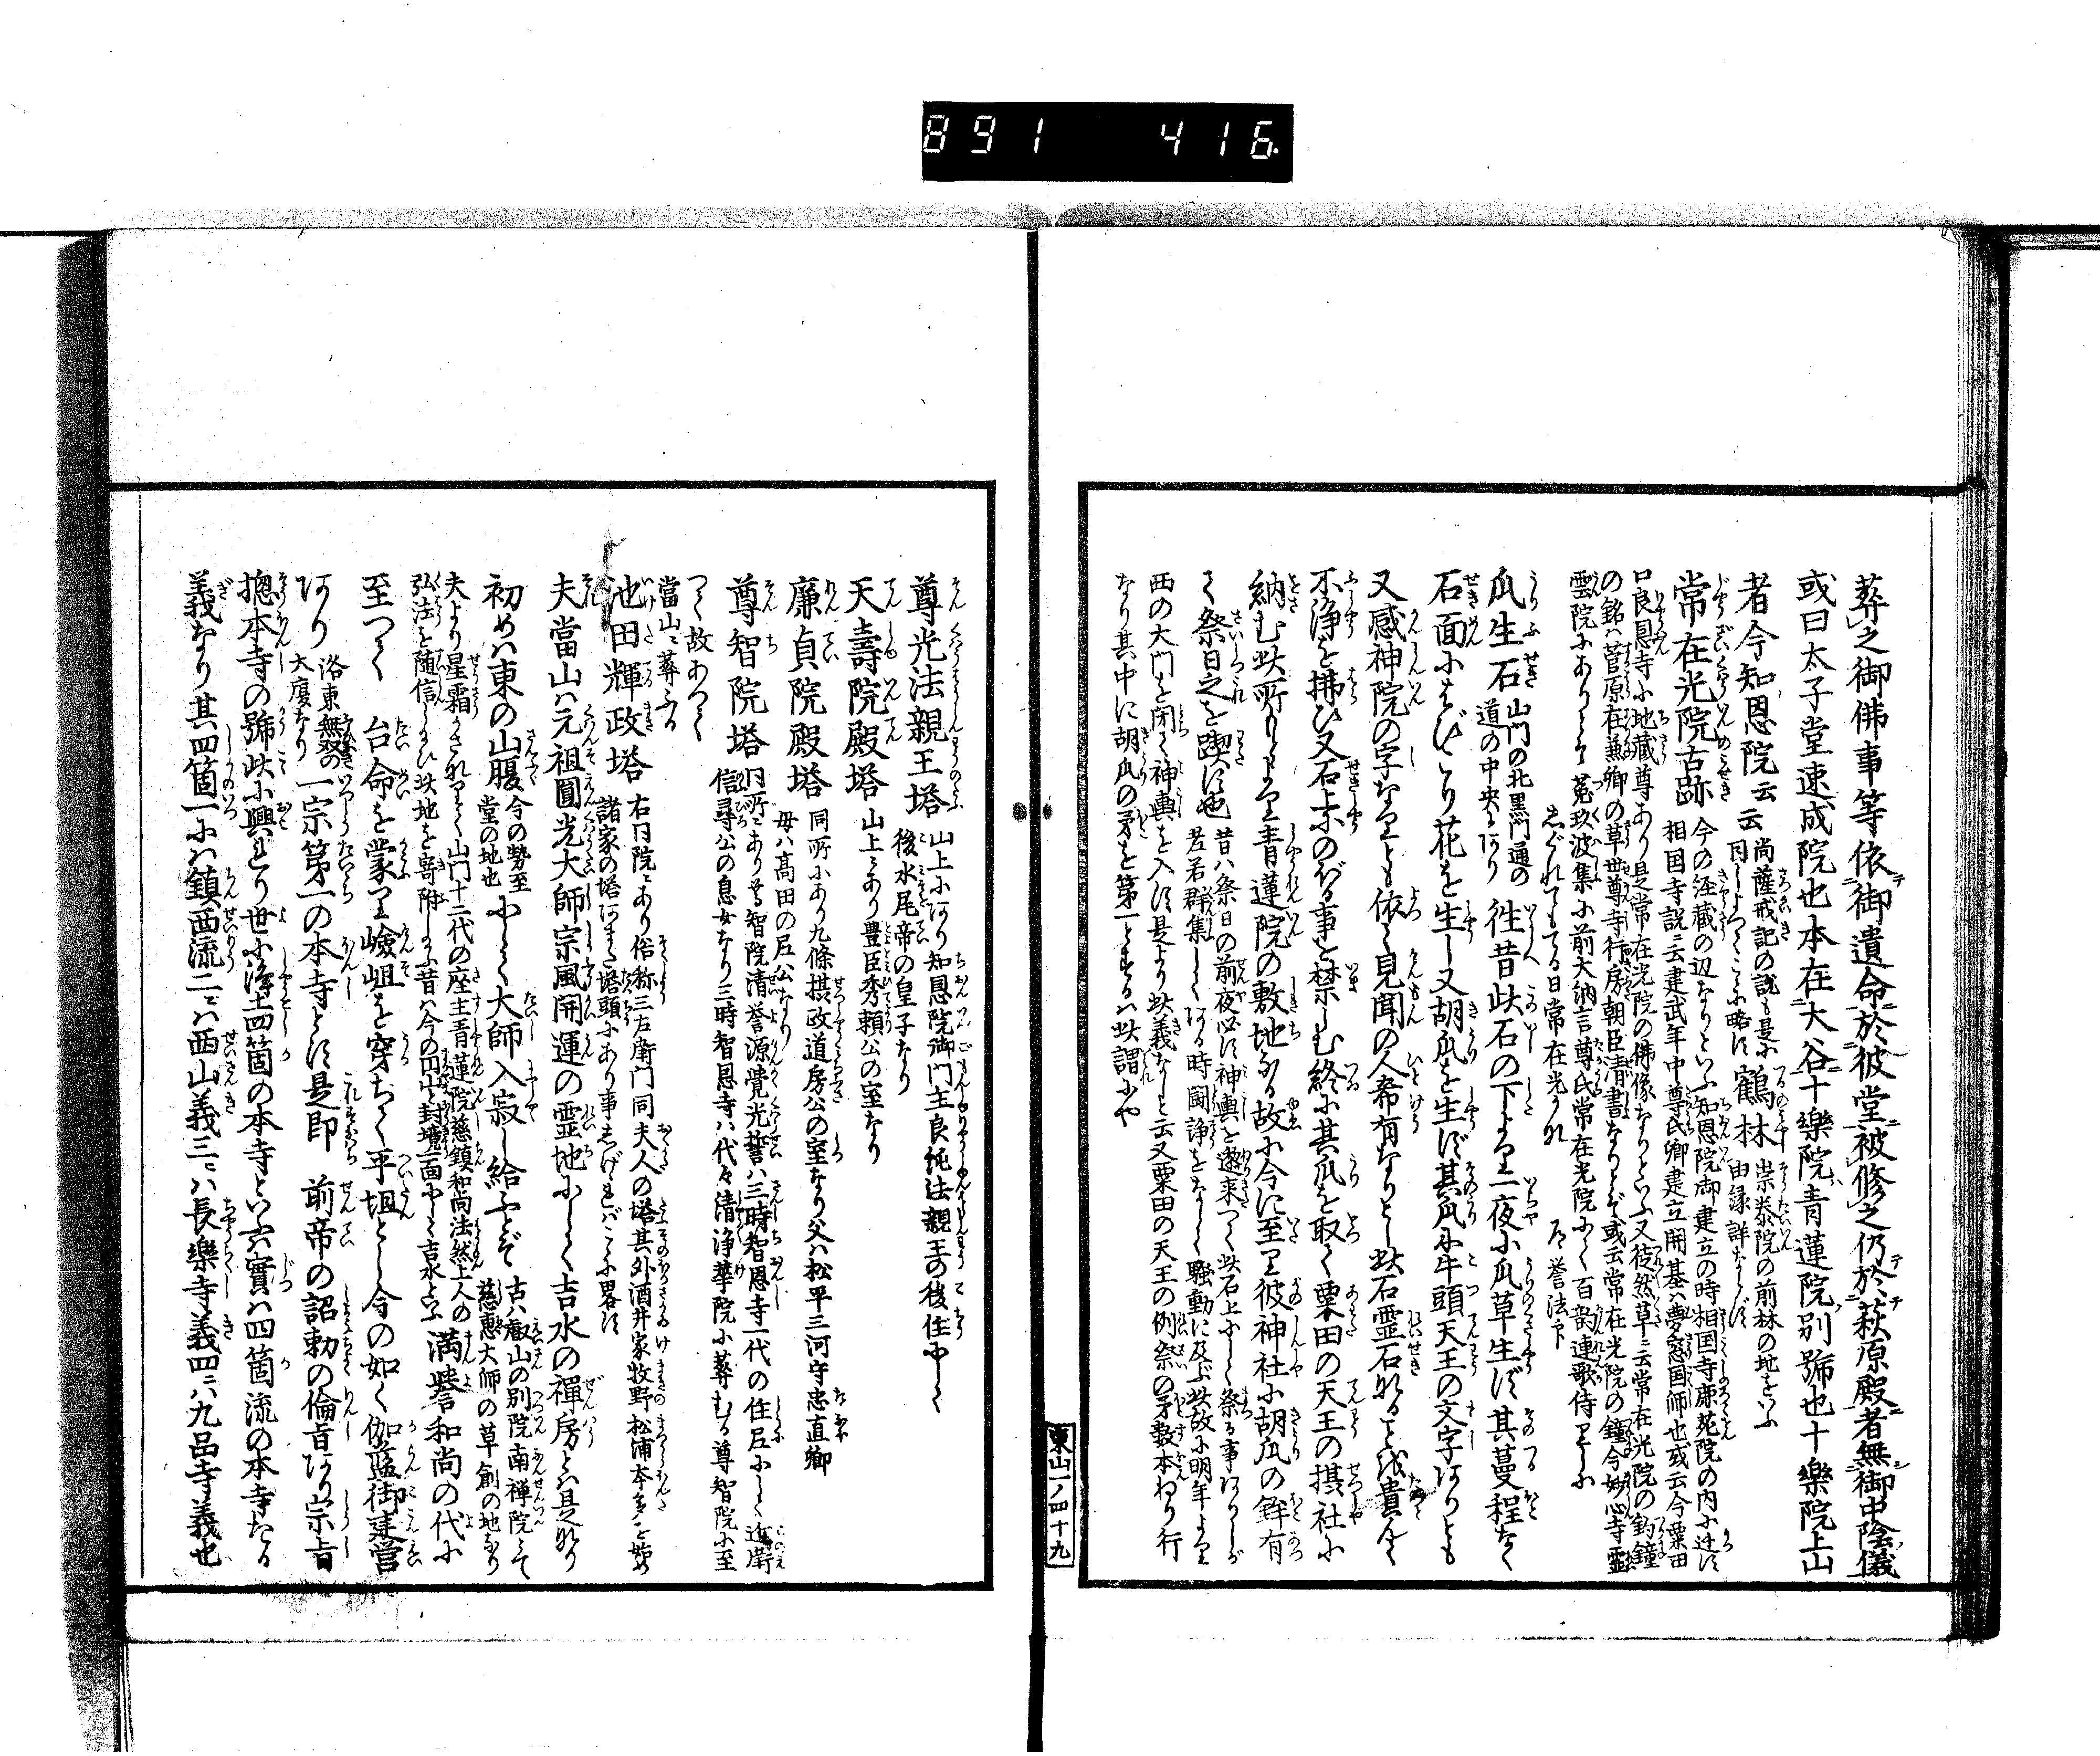 891 416
葬之御佛事等依御遺命於彼堂被修之仍於萩原殿者無御中陰儀
或曰太子堂速成院也本在大谷十樂院青蓮院別號也十樂院上山
者今知恩院云云
尚薩戒記の説も是小
同しよつてこゝに略に
鶴林
崇泰院の前林の地をいふ
由縁詳ならに
常在光院古跡
今の経蔵の辺なりといふ知恩院御建立の時相国寺鹿苑院の内小辻に
相国寺説ニ云建武年中尊氏卿建立開基ハ夢窓国師也或云今粟田
口良恩寺小地蔵尊あり是常在光院の佛像なりといふ又徒然草ニ云常在光院の釣鐘
の銘ハ菅原在兼卿の草世尊寺行房朝臣清書なりとぞ或云常在光院の鐘今妙心寺霊
雲院小あり
菟玖波集小前大納言尊氏常在光院小て百韵連歌侍りし小
しぐれてもてる日常在光かな
誉法印
瓜生石
山門の北黒門通の
道の中央にあり
往昔此石の下より一夜小瓜草生じ其蔓程なく
石面小はびこり花を生し又胡瓜を生じ其瓜小牛頭天王の文字ありとも
又感神院の字なりとも依て見聞の人希有なりとし此石霊石なるを以貴んで
不浄を拂ひ又石上小のぼる事を禁しむ終小其瓜を取て粟田の天王の摂社小
納む此所もとより青蓮院の敷地なる故小今に至り彼神社小胡瓜の鉾有
て祭日之を渡に也
昔ハ祭日の前夜必に神輿を遷来つて此石上小て祭る事ありしが
若若群集して ある時闘諍をなして騒動に及ぶ此故小明年より
西の大門を閉て神輿を入に是より此義なしと云又粟田の天王の例祭の矛数本ねり行
なり其中に胡瓜の矛を第一とするハ此謂小や
東山一ノ四十九
尊光法親王塔
山上小あり知恩院御門主良純法親王の後住小して
後水尾帝の皇子なり
天壽院殿塔
山上にあり豊臣秀頼公の室なり
廉貞院殿塔
同所小あり九條摂政道房公の室なり父ハ松平三河守忠直卿
母ハ高田の尼公なり
尊智院塔
同所にあり尊智院清誉源覚光誓ハ三時智恩寺一代の住尼小して近衛
信尋公の息女なり三時智恩寺ハ代々清浄華院小葬むる尊智院小至
つて故あつて
當山ニ葬ふる
池田輝政塔
右同院にあり俗称三左衛門同夫人の塔其外酒井家牧野松浦本多を始め
諸家の塔あまた塔頭小あり事しげければこゝ小畧に
夫當山ハ元祖圓光大師宗風開運の霊地小して吉水の禪房とハ是なり
初めハ東の山腹
今の勢至
堂の地也
小して大師入寂し給ふとぞ
古ハ叡山の別院南禪院とて
慈恵大師の草創の地なり
夫より星霜かさなりて山門十二代の座主青蓮院慈鎮和尚法然上人の
弘法を随信し給ひ此地を寄附し給ふ昔ハ今の円山と封境一面小して吉水といふ
満誉和尚の代小
至つて 台命を蒙り嶮岨を穿ちて平坦とし今の如く伽藍御建営
あり
洛東無双の
大廈なり
一宗第一の本寺とに是即 前帝の詔勅の倫旨あり宗旨
揔本寺の號此小興まり世小浄土四箇の本寺といふ實ハ四箇流の本寺たる
義なり其四箇一小ハ鎮西流二ニハ西山義三ニハ長樂寺義四ニハ九品寺義也